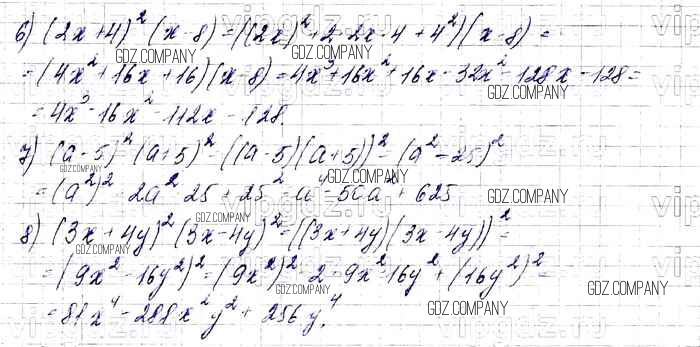 6) (2x+4)² (x-8) = ((2x)² + 2·2x·4 + 4²)(x-8) =
= (4x² + 16x + 16)(x-8) = 4x³ + 16x² + 16x - 32x² - 128x - 128 =
= 4x³ - 16x² - 112x - 128.
7) (a-5)² (a+5)² = ((a-5)(a+5))² = (a² - 25)²
= (a²)² - 2a²·25 + 25² = a⁴ - 50a² + 625
8) (3x+4y)² (3x-4y)² = ((3x+4y)(3x-4y))² =
= (9x² - 16y²)² = (9x²)² - 2·9x²·16y² + (16y²)² =
= 81x⁴ - 288x²y² + 256y⁴.
GDZ.COMPANY
GDZ.COMPANY
GDZ.COMPANY
GDZ.COMPANY
GDZ.COMPANY
GDZ.COMPANY
GDZ.COMPANY
GDZ.COMPANY
GDZ.COMPANY
GDZ.COMPANY
GDZ.COMPANY
GDZ.COMPANY
GDZ.COMPANY